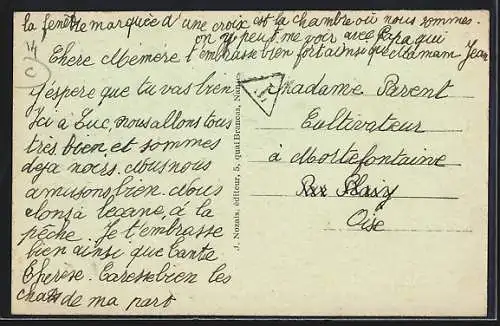 la fenêtre marquée d'une croix est la chambre où nous sommes.
on y peut me voir avec Papa qui
Chère Mémère t'embrasse bien fort ainsi que Maman Jean
J'éspère que tu vas bien
Ici à Luc, nous allons tous
très bien et sommes
déja noirs. Nous nous
amusons bien. Nous
alons à la à la
pêche. Je t'embrasse
bien ainsi que Tante
Thérèse. Caresse bien les
chats de ma part
J. Nozais, éditeur, 5, quai Brancas, Nantes
Madame Parent
Cultivateur
à Mortefontaine
Par Plaiy
Oise